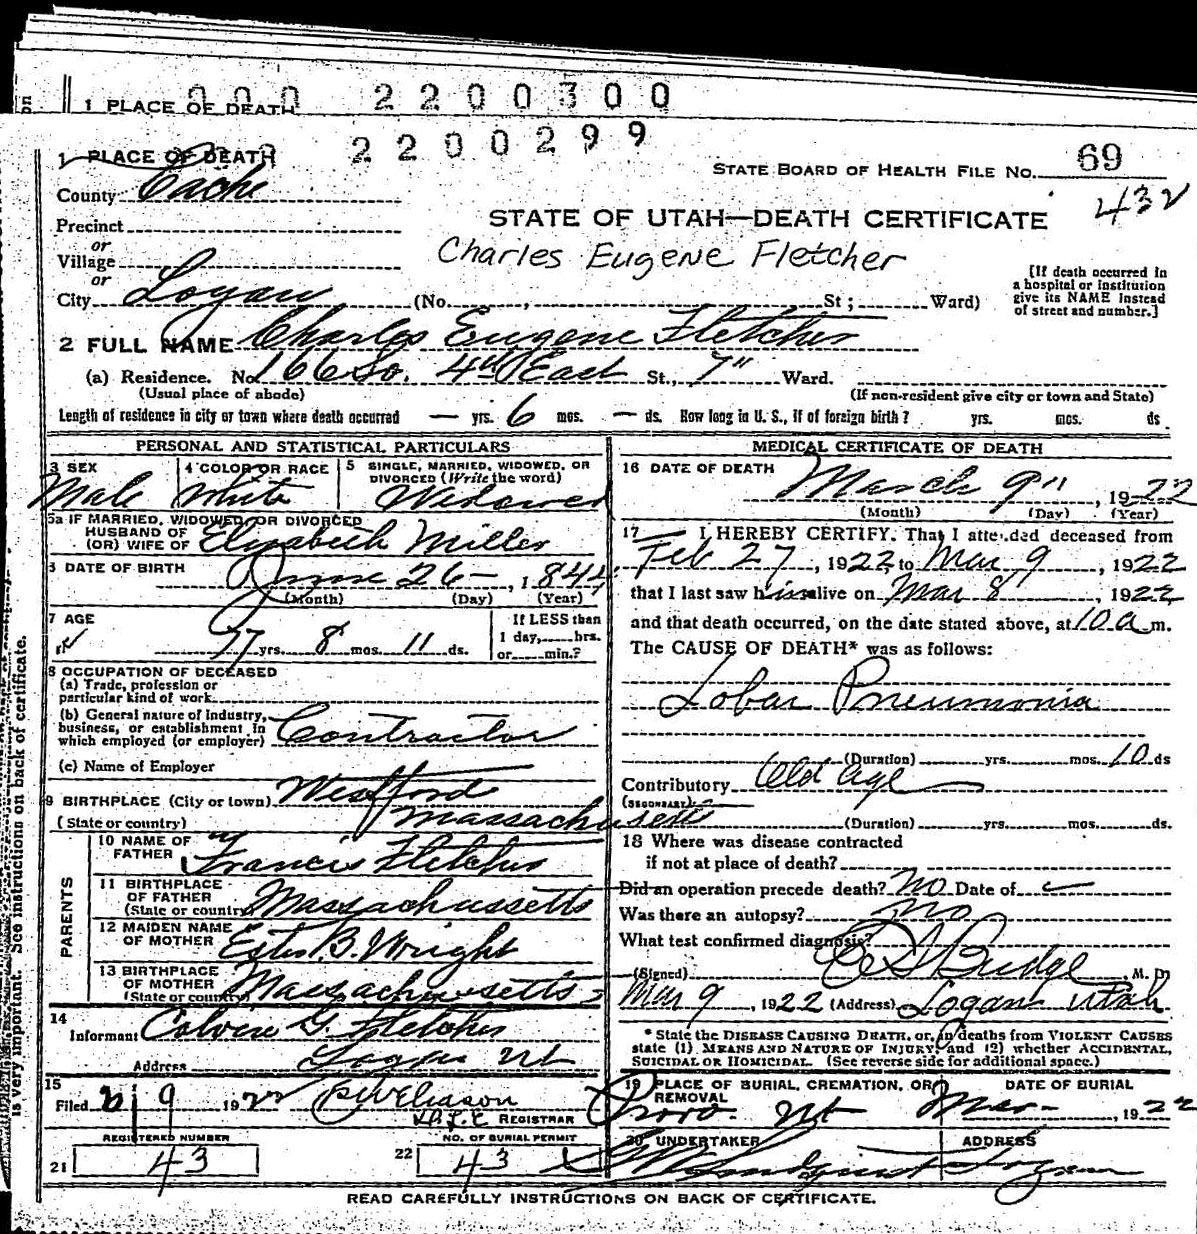 on
1 PLACE OF DEATH
0 0 0 2 2 0 0 3 0 0
2 2 0 0 2 9 9
1 PLACE OF DEATH
STATE BOARD OF HEALTH FILE NO. 69
County Cache
432
STATE OF UTAH—DEATH CERTIFICATE
Precinct
or
Village
Charles Eugene Fletcher
[If death occurred in a hospital or institution give its NAME instead of street and number.]
or
City Logan (No. , St; Ward)
2 FULL NAME Charles Eugene Fletcher
(a) Residence. No. 166 So. 4th East St., 7" Ward.
(Usual place of abode) (If non-resident give city or town and State)
Length of residence in city or town where death occurred — yrs. 6 mos. — ds. How long in U. S., if of foreign birth? yrs. mos. ds.
PERSONAL AND STATISTICAL PARTICULARS
3 SEX Male
4 COLOR OR RACE White
5 SINGLE, MARRIED, WIDOWED, OR DIVORCED (Write the word) Widower
5a IF MARRIED, WIDOWED, OR DIVORCED
HUSBAND OF
(OR) WIFE OF Elizabeth Miller
6 DATE OF BIRTH June 26 — , 1844
(Month) (Day) (Year)
7 AGE 77 yrs. 8 mos. 11 ds.
If LESS than 1 day, hrs. or min.?
8 OCCUPATION OF DECEASED
(a) Trade, profession or particular kind of work
(b) General nature of industry, business, or establishment in which employed (or employer) Contractor
(c) Name of Employer
9 BIRTHPLACE (City or town) Westford
(State or country) Massachusetts
PARENTS
10 NAME OF FATHER Francis Fletcher
11 BIRTHPLACE OF FATHER (State or country) Massachussetts
12 MAIDEN NAME OF MOTHER B. Wright
13 BIRTHPLACE OF MOTHER (State or country) Massachusetts
14
Informant Calvin G. Fletcher
Address Logan Ut
15
Filed 9 1922
REGISTRAR
REGISTERED NUMBER
21 43
NO. OF BURIAL PERMIT
22 43
MEDICAL CERTIFICATE OF DEATH
16 DATE OF DEATH March 9" , 1922
(Month) (Day) (Year)
17 I HEREBY CERTIFY. That I attended deceased from
Feb 27 , 1922 to Mar 9 , 1922
that I last saw him alive on Mar 8 , 1922
and that death occurred, on the date stated above, at 10 a m.
The CAUSE OF DEATH* was as follows:
Lobar Pneumonia
(Duration) yrs. mos. 10 ds
Contributory Old age
(SECONDARY)
(Duration) yrs. mos. ds.
18 Where was disease contracted
if not at place of death?
Did an operation precede death? No Date of
Was there an autopsy? no
What test confirmed diagnosis?
(Signed) Budge , M. D.
Mar 9 , 1922 (Address) Logan Utah
* State the DISEASE CAUSING DEATH, or, in deaths from VIOLENT CAUSES state (1) MEANS AND NATURE OF INJURY, and (2) whether ACCIDENTAL, SUICIDAL OR HOMICIDAL. (See reverse side for additional space.)
19 PLACE OF BURIAL, CREMATION, OR REMOVAL Provo Ut
DATE OF BURIAL Mar — , 1922
20 UNDERTAKER Lindquist
ADDRESS Logan
READ CAREFULLY INSTRUCTIONS ON BACK OF CERTIFICATE.
is very important. See instructions on back of certificate.